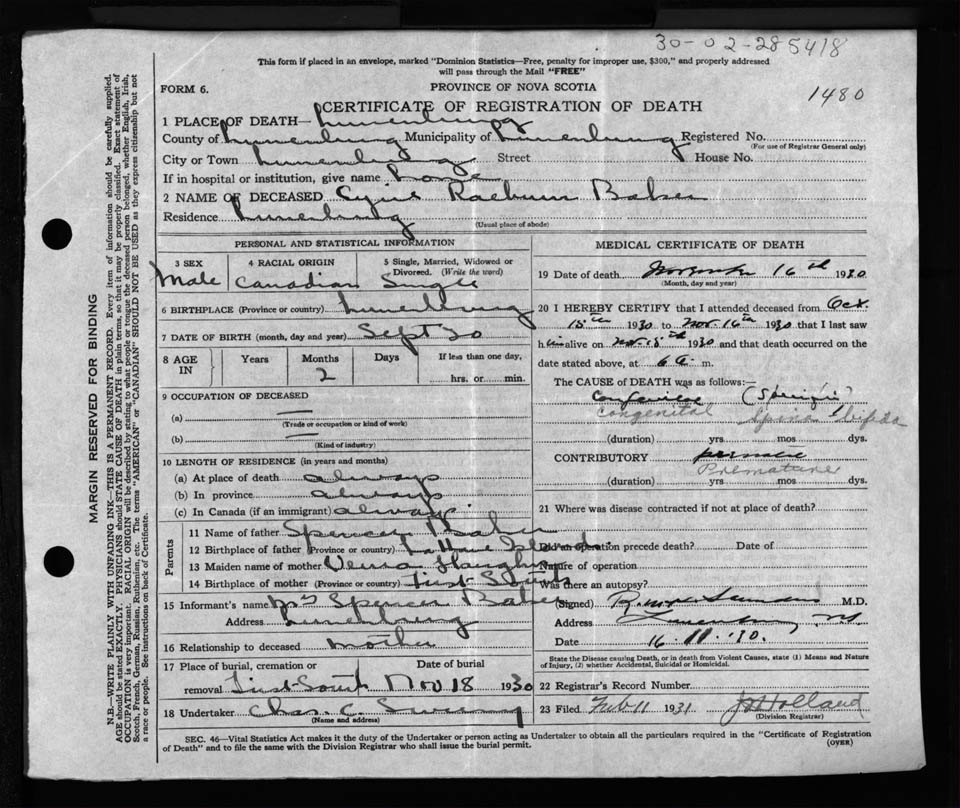 30-02-285418
This form if placed in an envelope, marked "Dominion Statistics—Free, penalty for improper use, $300," and properly addressed
will pass through the Mail "FREE"
FORM 6.
PROVINCE OF NOVA SCOTIA
1480
CERTIFICATE OF REGISTRATION OF DEATH
1 PLACE OF DEATH— Lunenburg
County of Lunenburg Municipality of Lunenburg Registered No.
(For use of Registrar General only)
City or Town Lunenburg Street House No.
If in hospital or institution, give name
2 NAME OF DECEASED Raeburn
Residence Lunenburg
(Usual place of abode)
PERSONAL AND STATISTICAL INFORMATION
3 SEX
Male
4 RACIAL ORIGIN
Canadian
5 Single, Married, Widowed or
Divorced. (Write the word)
Single
6 BIRTHPLACE (Province or country) Lunenburg
7 DATE OF BIRTH (month, day and year) Sept 30
8 AGE IN
Years
Months
2
Days
If less than one day,
hrs. or min.
9 OCCUPATION OF DECEASED
(a) —
(Trade or occupation or kind of work)
(b) —
(Kind of industry)
10 LENGTH OF RESIDENCE (in years and months)
(a) At place of death always
(b) In province always
(c) In Canada (if an immigrant) always
Parents
11 Name of father Spencer
12 Birthplace of father (Province or country) LaHave Islands
13 Maiden name of mother
14 Birthplace of mother (Province or country) First South
15 Informant's name Mrs Spencer
Address Lunenburg
16 Relationship to deceased mother
17 Place of burial, cremation or
removal First South
Date of burial
Nov 18 1930
18 Undertaker Chas. C.
(Name and address)
MEDICAL CERTIFICATE OF DEATH
19 Date of death November 16th 1930
(Month, day and year)
20 I HEREBY CERTIFY that I attended deceased from Oct.
15th 1930 to Nov. 16th 1930 that I last saw
him alive on Nov. 15th 1930 and that death occurred on the
date stated above, at 6 a. m.
The CAUSE OF DEATH was as follows:—
Congenital
Congenital Spina bifida
(duration) yrs. mos. dys.
CONTRIBUTORY
Premature
(duration) yrs. mos. dys.
21 Where was disease contracted if not at place of death?
Did an operation precede death? Date of
Nature of operation
Was there an autopsy?
(Signed) M.D.
Address Lunenburg N.S.
Date 16.11.30.
State the Disease causing Death, or in death from Violent Causes, state (1) Means and Nature
of Injury, (2) whether Accidental, Suicidal or Homicidal.
22 Registrar's Record Number
23 Filed Feb 11 1931 Holland
(Division Registrar)
SEC. 46—Vital Statistics Act makes it the duty of the Undertaker or person acting as Undertaker to obtain all the particulars required in the "Certificate of Registration
of Death" and to file the same with the Division Registrar who shall issue the burial permit.
(OVER)
MARGIN RESERVED FOR BINDING
N.B.—WRITE PLAINLY WITH UNFADING INK—THIS IS A PERMANENT RECORD. Every item of information should be carefully supplied.
AGE should be stated EXACTLY. PHYSICIANS should STATE CAUSE OF DEATH in plain terms, so that it may be properly classified. Exact statement of
OCCUPATION is very important. RACIAL ORIGIN will be described by stating to what people or tongue the deceased person belonged, whether English, Irish,
Scotch, French, German, Russian, Ruthenian, etc. The terms "AMERICAN" or "CANADIAN" SHOULD NOT BE USED as they express citizenship but not
a race or people. See instructions on back of Certificate.